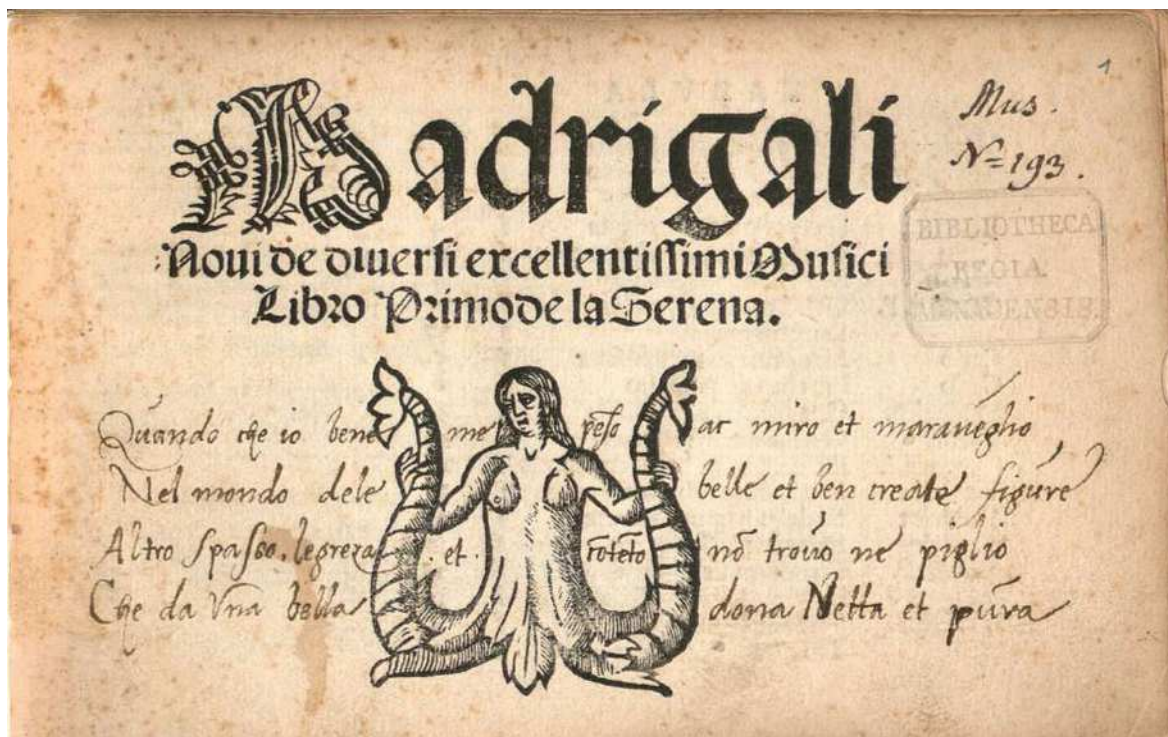 1
Mus.
N=193.
Madrigali
Noui de diuersi excellentissimi Musici
Libro Primo de la Serena.
BIBLIOTHECA
REGIA
Quando che io bene me peso ac miro et maraueglio
Nel mondo dele belle et ben create figure
Altro spasso. legreza . et . cōtēto nō trouo ne piglio
Che da Vna bella dona Netta et pura